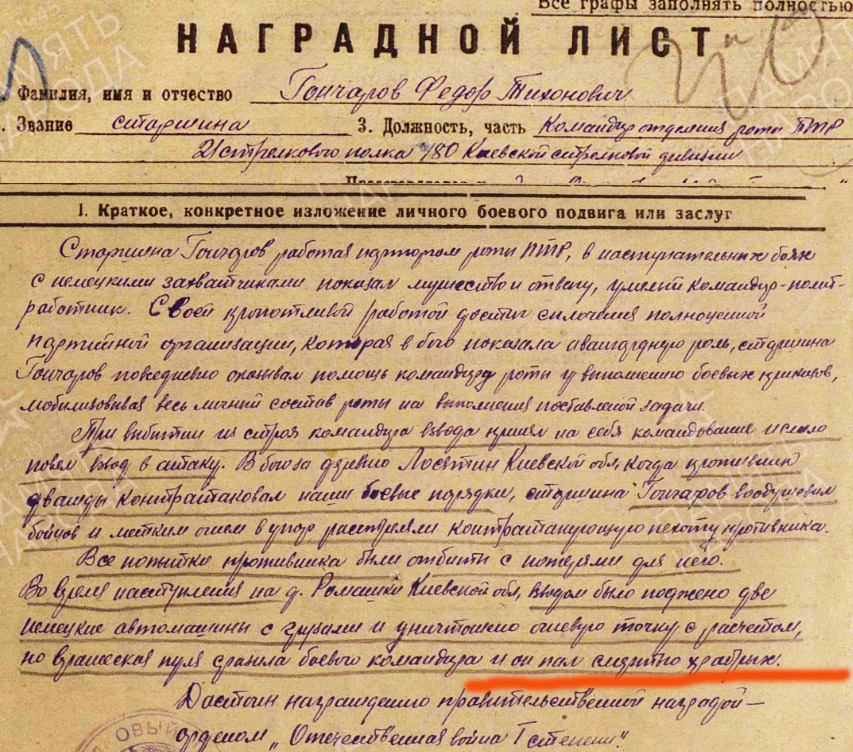 Все графы заполнять полностью
НАГРАДНОЙ ЛИСТ
Фамилия, имя и отчество Гончаров Федор Тихонович
. Звание старшина 3. Должность, часть Командир отделения роты ПТР
21 стрелкового полка 180 Киевской стрелковой дивизии
I. Краткое, конкретное изложение личного боевого подвига или заслуг
Старшина Гончаров работая парторгом роты ПТР, в наступательных боях
с немецкими захватчиками показал мужество и отвагу, умелый командир-полит-
работник. Своей кропотливой работой достиг сплочения полноценной
партийной организации, которая в бою показала авангардную роль, старшина
Гончаров повседневно оказывал помощь командиру роты у выполнению боевых приказов,
мобилизовывая весь личный состав роты на выполнения поставленой задачи.
При выбытии из строя командира взвода принял на себя командование и смело
повел взвод в атаку. В бою за дзевню Лосятин Киевской обл, когда противник
дважды контратаковал наши боевые порядки, старшина Гончаров воодушевил
бойцов и метким огнем в упор расстреляли контратакующую пехоту противника.
Все попытки противника были отбиты с потерями для него.
Во время наступления на д. Ромашки Киевской обл, взводом было поджено две
немецкие автомашины с грузами и уничтожено огневую точку с расчетом,
но вражеская пуля сразила боевого командира и он пал смертью храбрых.
Достоин награждению правительственной наградой—
орденом „Отечественная война I степени".
ПАМЯТЬ
НАРОДА
ОВЫЙ